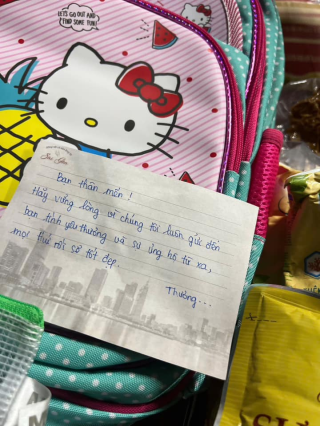 LET'S GO OUT AND
FIND SOME FUN!
Sài Gòn
Bạn thân mến!
Hãy vững lòng vì chúng tôi luôn gửi đến
bạn tình yêu thương và sự ủng hộ từ xa,
mọi thứ rồi sẽ tốt đẹp.
Thương...